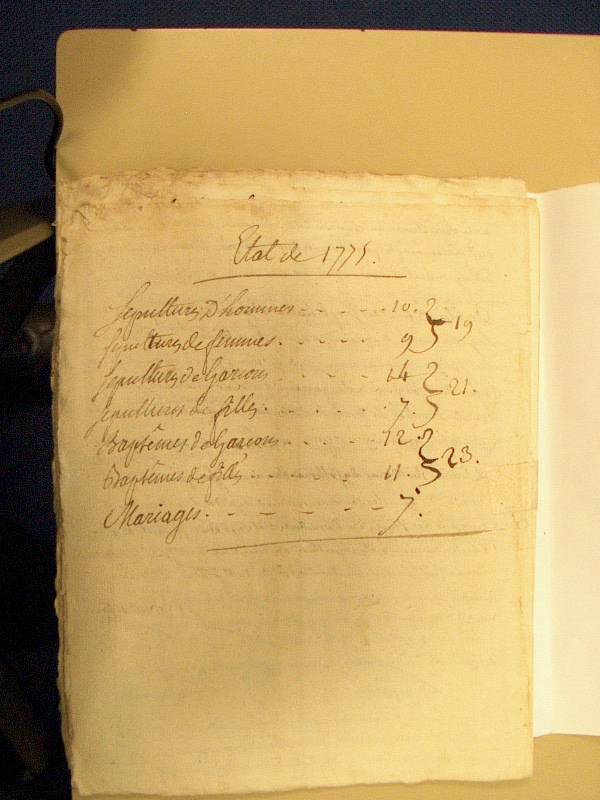 Etat de 1775.
Sepultures d'hommes - - - - - 10. } 19
Sepultures de femmes. - - - - 9
Sepultures de Garçons - - - - 14 } 21.
Sepultures de filles. - - - - - 7.
Baptêmes de Garçons - - - - 12. } 23.
Baptêmes de filles - - - - - 11.
Mariages. - - - - - - 7.